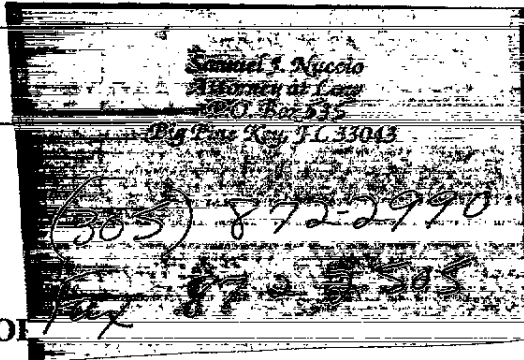 Samuel J. Nuccio
Attorney at Law
P.O. Box 535
Big Pine Key, FL 33043
(305) 872-2990
Fax 872